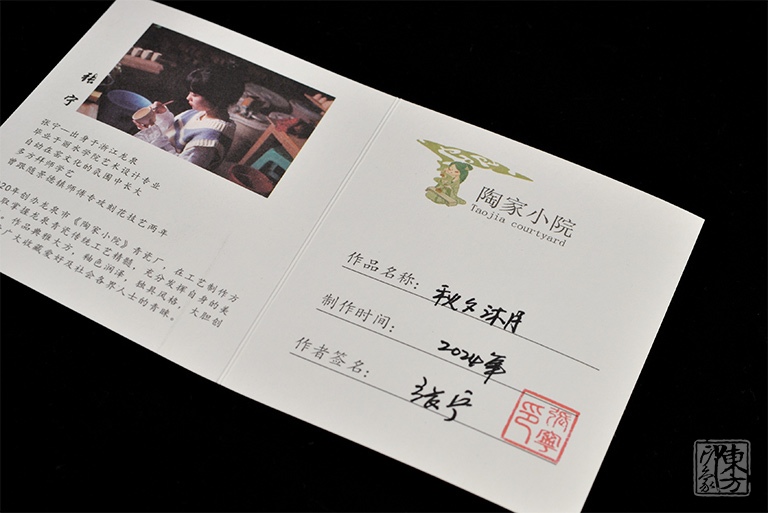 张
宁
张宁—出身于浙江龙泉
毕业于丽水学院艺术设计专业
自幼在窑文化的氛围中长大
多方拜师学艺
曾跟随景德镇师傅专攻刻花技艺两年
20年创办龙泉市《陶家小院》青瓷厂，在工艺制作方
取掌握龙泉青瓷传统工艺精髓，充分发挥自身的美
。作品典雅大方，釉色润泽，独具风格，大胆创
广大收藏爱好及社会各界人士的青睐。
陶家小院
Taojia courtyard
作品名称：秋夕沐月
制作时间：2024年
作者签名：张宁
張寧印
東方印象